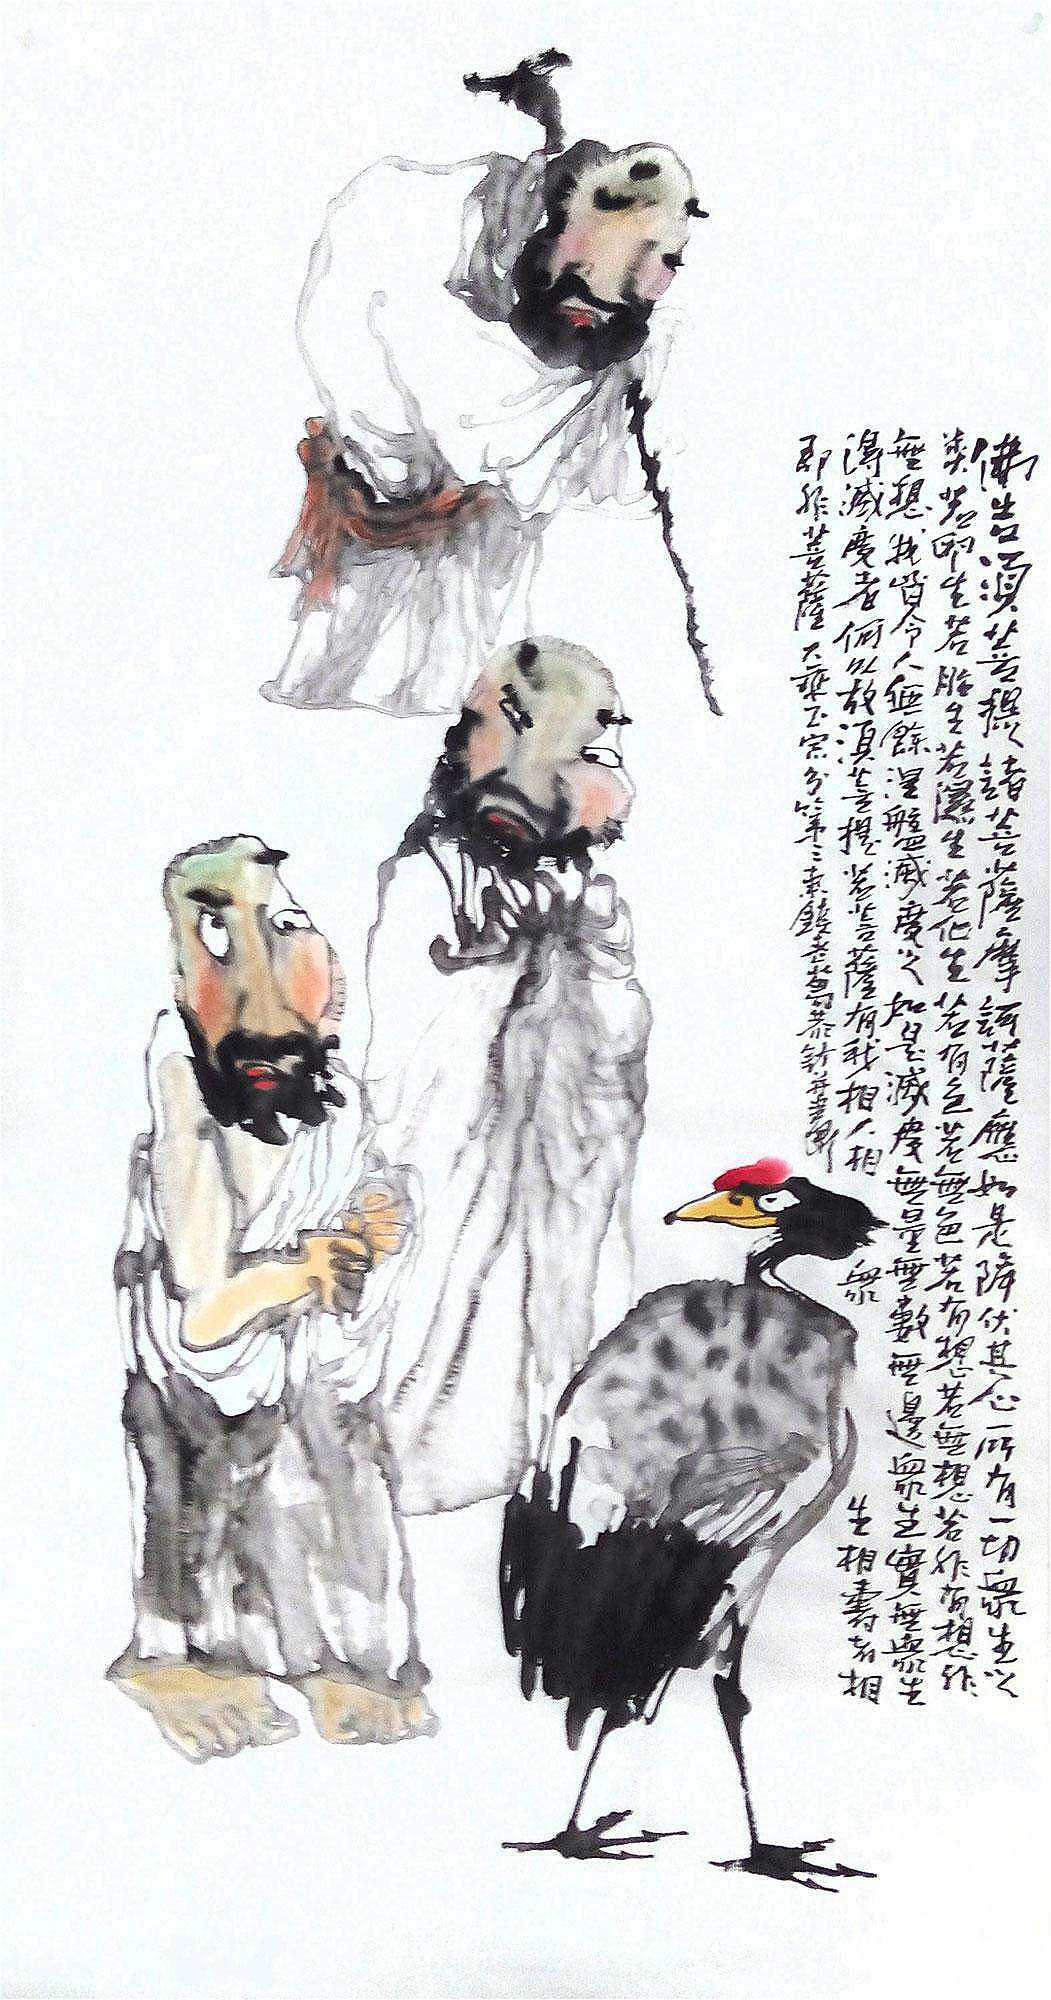 佛告須菩提諸菩薩摩訶薩應如是降伏其心所有一切眾生之
類若卵生若胎生若濕生若化生若有色若無色若有想若無想若非有想非
無想我皆令入無餘涅盤滅度之如是滅度無量無數無邊眾生實無眾生
得滅度者何以故須菩提若菩薩有我相人相眾生相壽者相
即非菩薩大乘正宗分第三